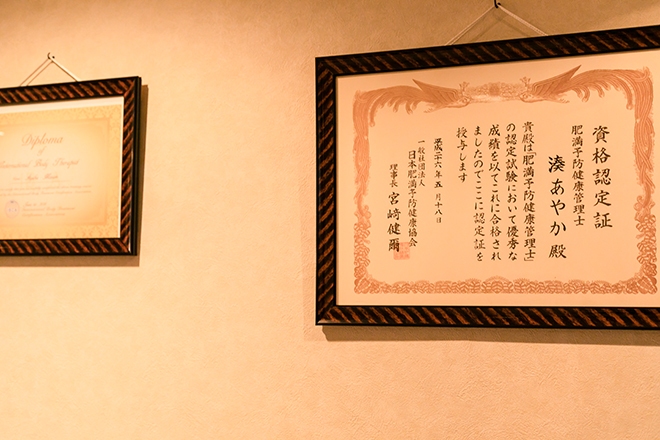 Diploma
資格認定証
肥満予防健康管理士
湊あやか殿
貴殿は「肥満予防健康管理士」
の認定試験において優秀な
成績を以てこれに合格され
ましたのでここに認定証を
授与します
平成二六年五月十八日
一般社団法人
日本肥満予防健康協会
理事長 宮﨑健爾